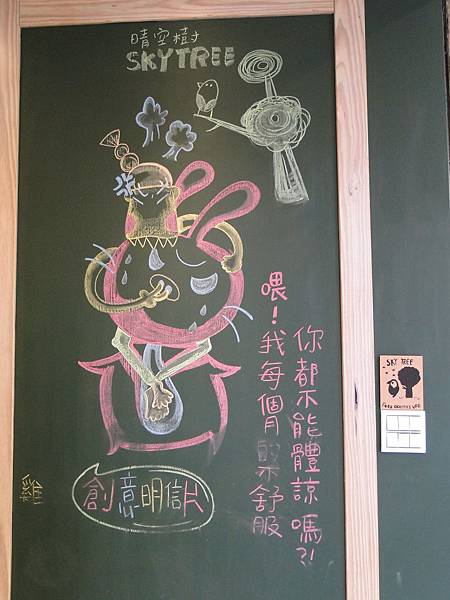 晴空樹
SKYTREE
喂！我每個月的不舒服
你都不能體諒嗎?!
創意明信片
SKY TREE